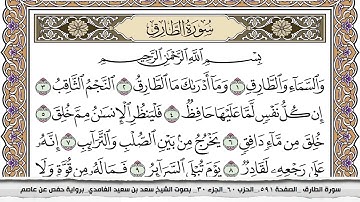 سُورَةُ الطَّارِقِ
بِسْمِ اللَّهِ الرَّحْمَٰنِ الرَّحِيمِ
وَالسَّمَاءِ وَالطَّارِقِ ١ وَمَا أَدْرَاكَ مَا الطَّارِقُ ٢ النَّجْمُ الثَّاقِبُ ٣
إِن كُلُّ نَفْسٍ لَّمَّا عَلَيْهَا حَافِظٌ ٤ فَلْيَنظُرِ الْإِنسَانُ مِمَّ خُلِقَ ٥
خُلِقَ مِن مَّاءٍ دَافِقٍ ٦ يَخْرُجُ مِن بَيْنِ الصُّلْبِ وَالتَّرَائِبِ ٧ إِنَّهُ
عَلَىٰ رَجْعِهِ لَقَادِرٌ ٨ يَوْمَ تُبْلَى السَّرَائِرُ ٩ فَمَا لَهُ مِن قُوَّةٍ وَلَا
سورة الطارق _الصفحة ٥٩١_ الحزب ٦٠_الجزء ٣٠_ بصوت الشيخ سعد بن سعيد الغامدي_ برواية حفص عن عاصم